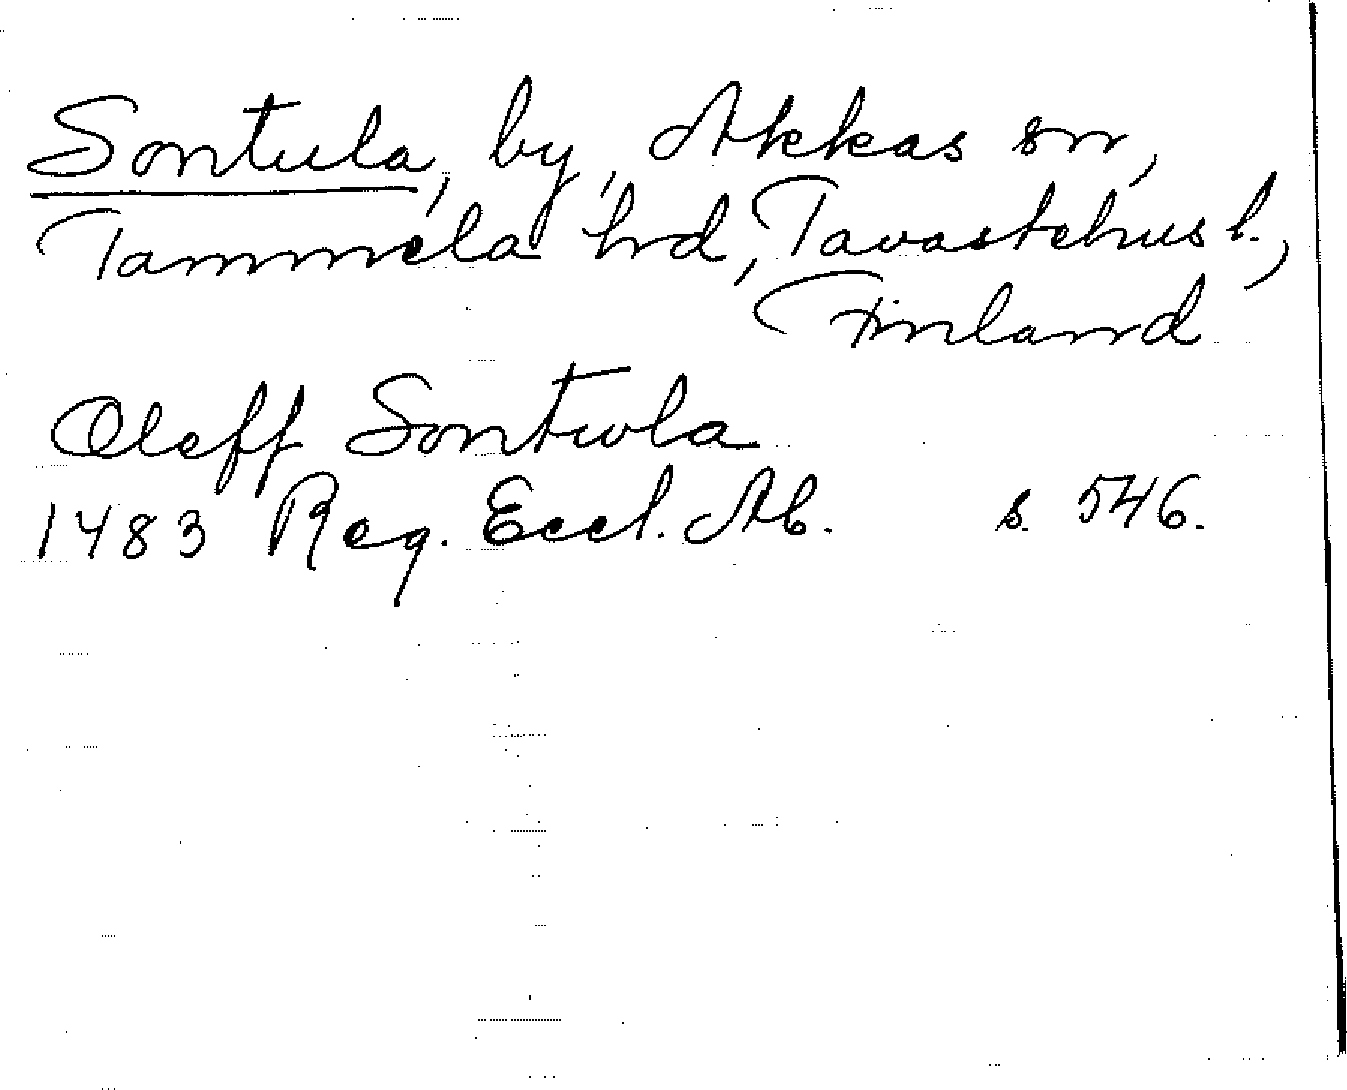 Sontula, by, Akkas sn,
Tammela hrd, Tavastehus l.,
Finland
Oleff Sontwla
1483 Reg. Eccl. Ab. s. 546.